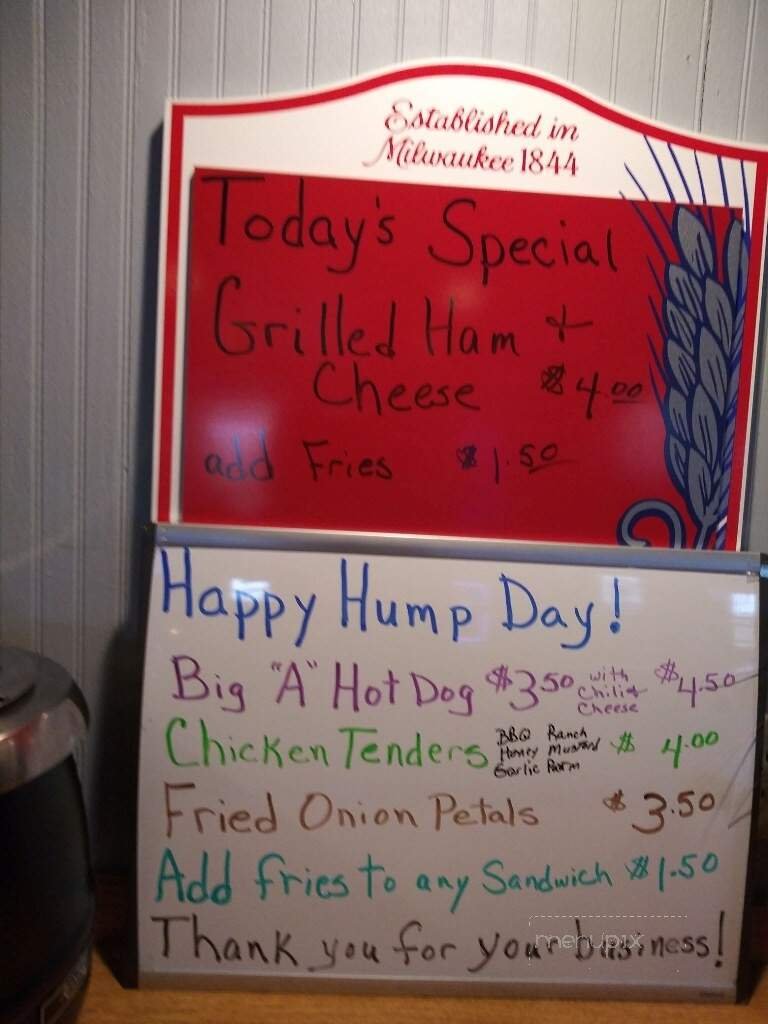 Established in
Milwaukee 1844
Today's Special
Grilled Ham &
Cheese $4.00
add Fries $1.50
Happy Hump Day!
Big "A" Hot Dog $3.50 with Chili & Cheese $4.50
Chicken Tenders BBQ Ranch Honey Mustard Garlic Parm $4.00
Fried Onion Petals $3.50
Add fries to any Sandwich $1.50
Thank you for your business!
menupix